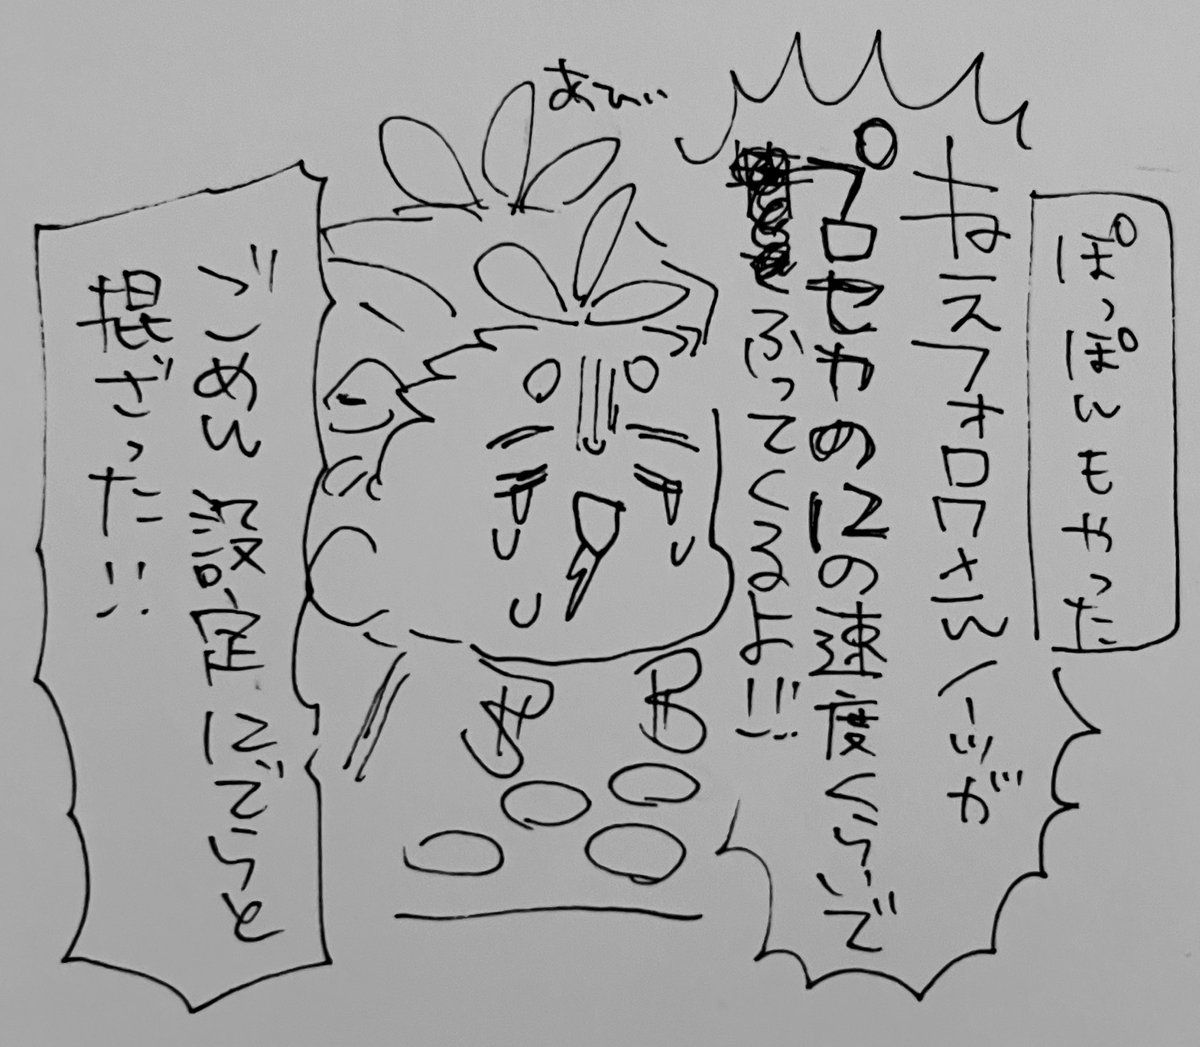 ぽっぽんもやった
ねえフォロワさんノーツが
プロセカの12の速度くらいで
ふってくるよ!!!
あひぃ
ごめん設定にでらと
混ざった!!